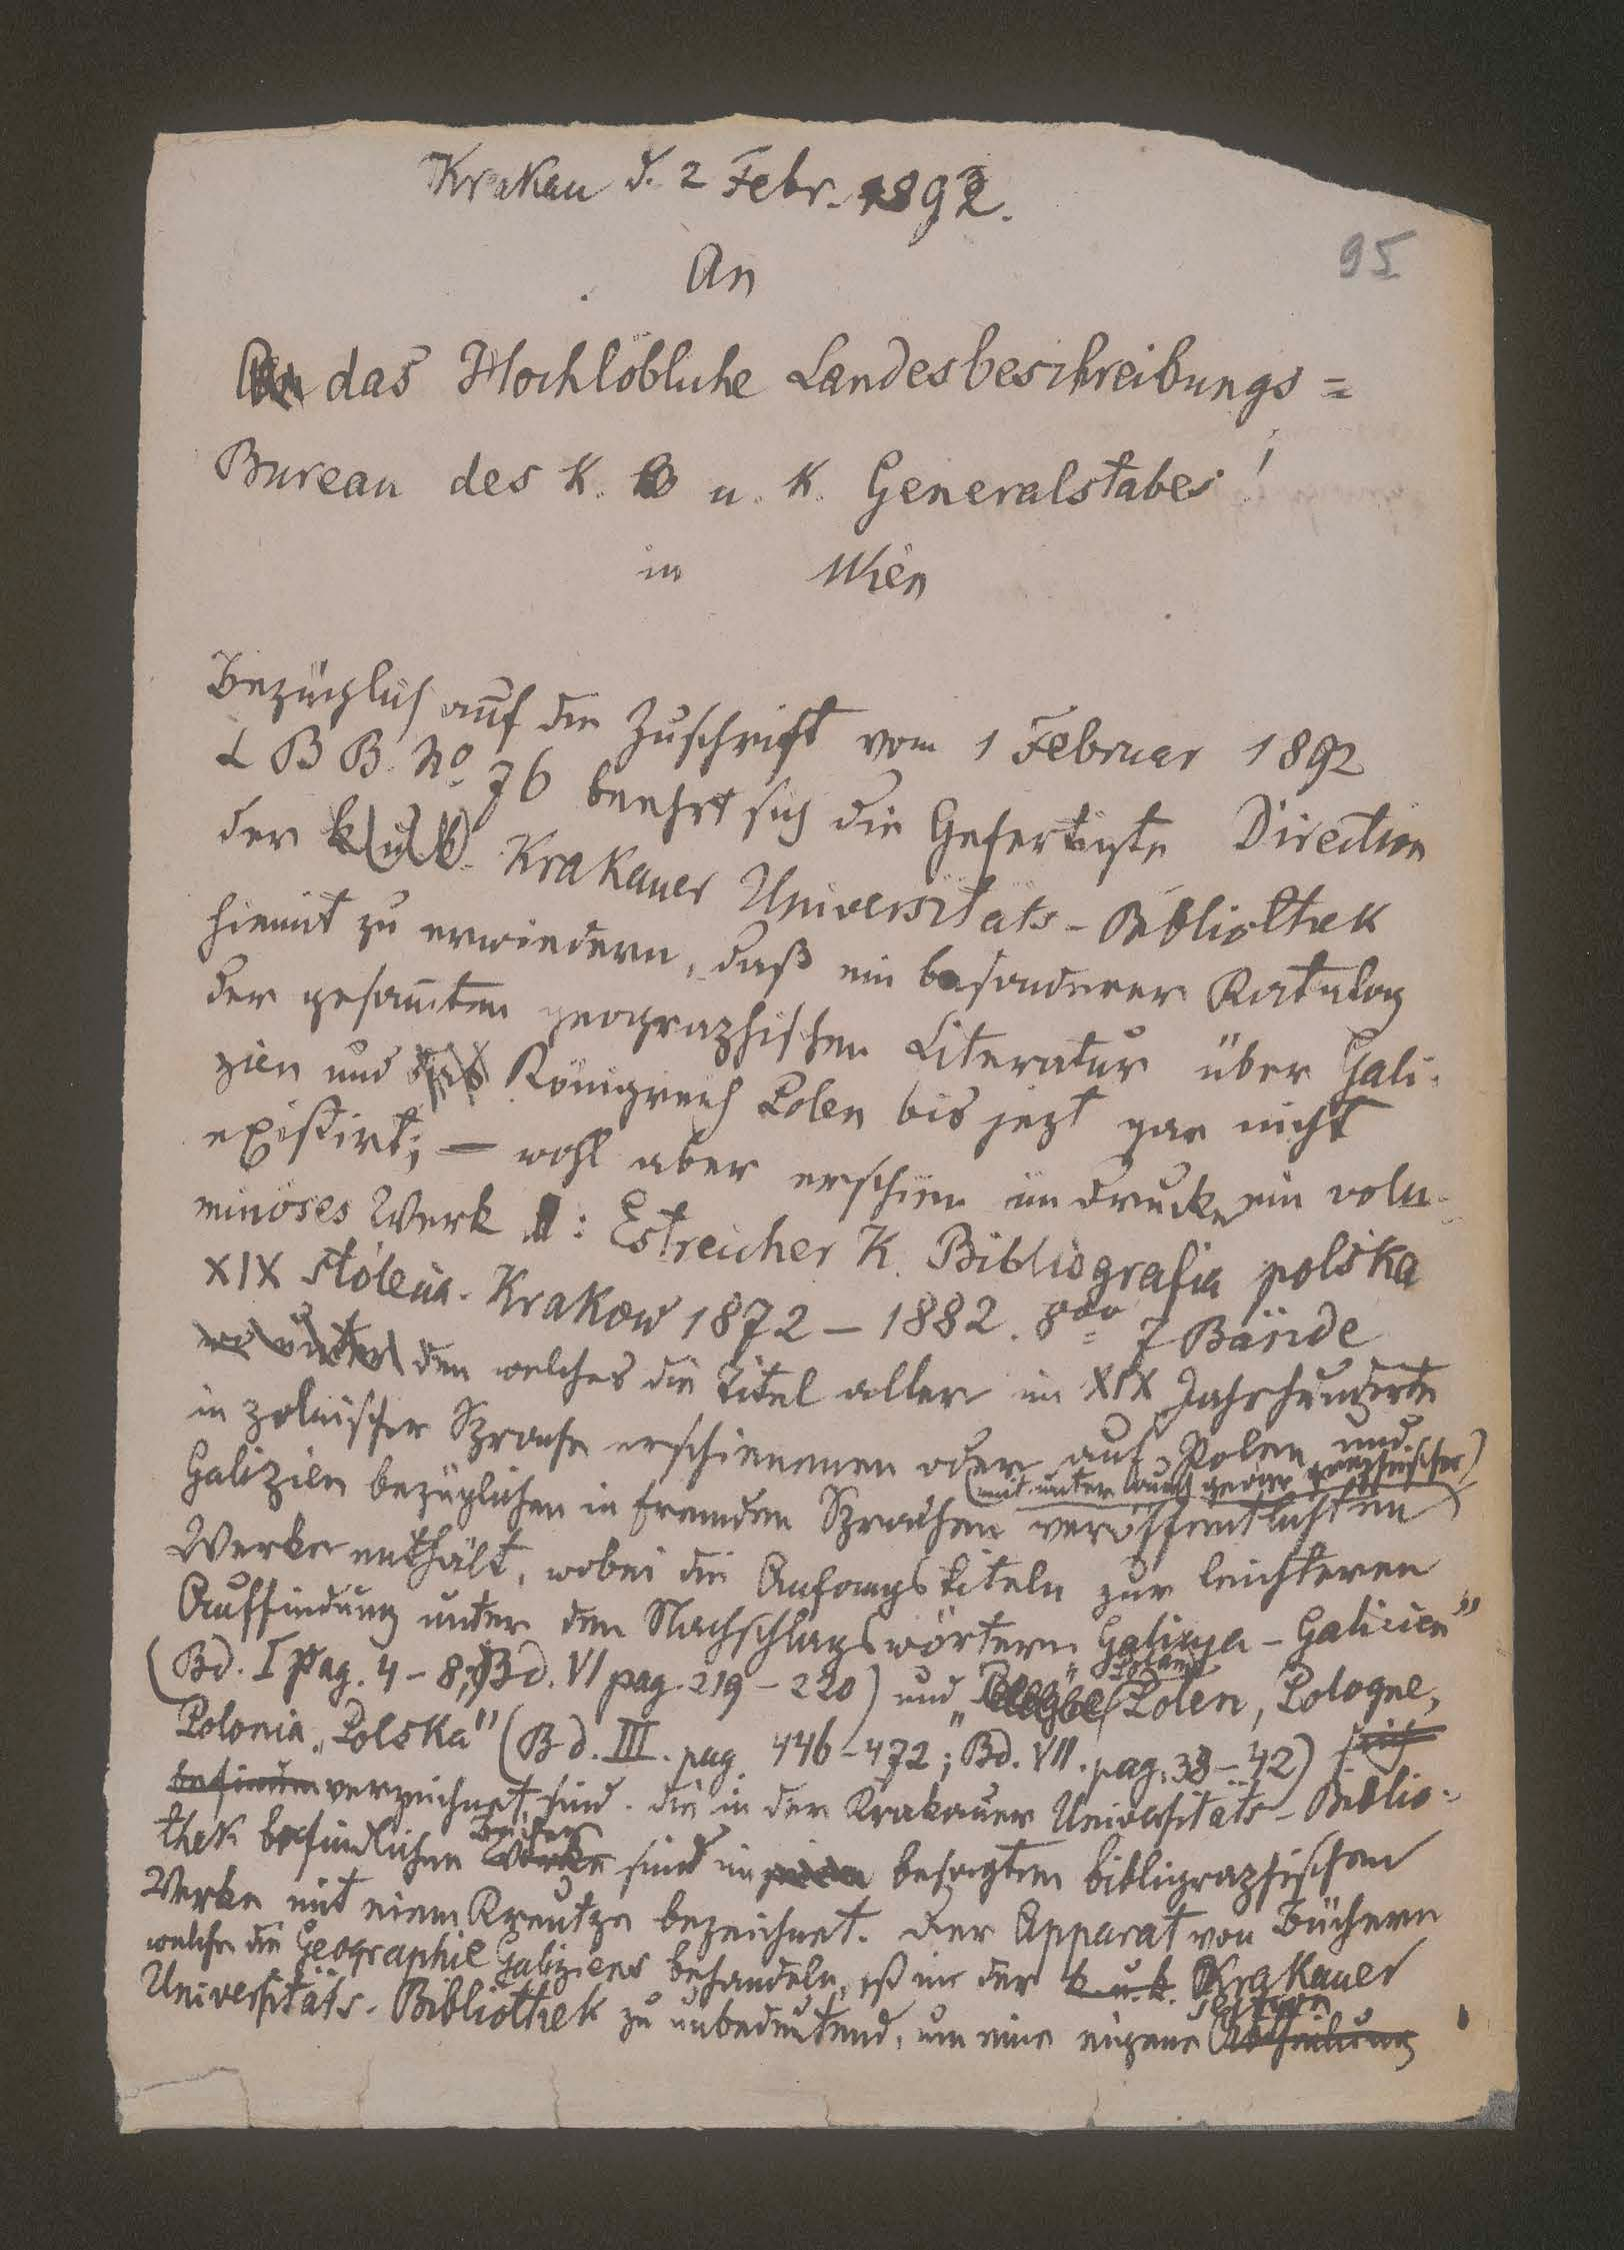 Krakau d. 2 Febr. 1892.
95
An
das Hochlöbliche Landesbeschreibungs=
Bureau des K. u. K. Generalstabes!
in Wien
Bezüglich auf die Zuschrift vom 1 Februar 1892
L B B. No. 76 beehrt sich die Gefertigte Direction
der k. u. k. Krakauer Universitäts-Bibliothek
hiemit zu erwiedern, daß ein besonderer Katalog
der gesam̄ten geographischen Literatur über Gali-
zien und das Königreich Polen bis jezt gar nicht
existirt; — wohl aber erschien im Drucke ein volu-
minöses Werk : Estreicher K. Bibliografia polska
XIX stólecia. Krakow 1872 – 1882. 8vo 7 Bände
wo unter den welches die Titel aller im XIX Jahrhunderte
in polnischer Sprache erschienenen oder auf Polen und
(mit unter auch geographischer)
Galizien bezüglichen in fremden Sprachen veröffentlichten
Werke enthält, wobei die Anfangstiteln zur leichteren
Auffindung unter den Nachschlagswörtern Galicya – Galicien"
(Bd. I pag. 4 – 8; Bd. VI pag. 219 – 220) und „Poland Polen, Pologne,
Polonia, Polska" (Bd. III. pag. 446–472; Bd. VII. pag. 38 – 42) sich
befinden verzeichnet sind. die in der Krakauer Universitäts-Biblio-
Bücher
thek befindlichen Werke sind im besagten bibligraphischen
Werke mit einem Kreutze bezeichnet. Der Apparat von Büchern
welche die Geographie Galiziens behandeln, ist in der k. u. k. Krakauer
Universitäts-Bibliothek zu unbedeutend, um eine eigene Abtheilung